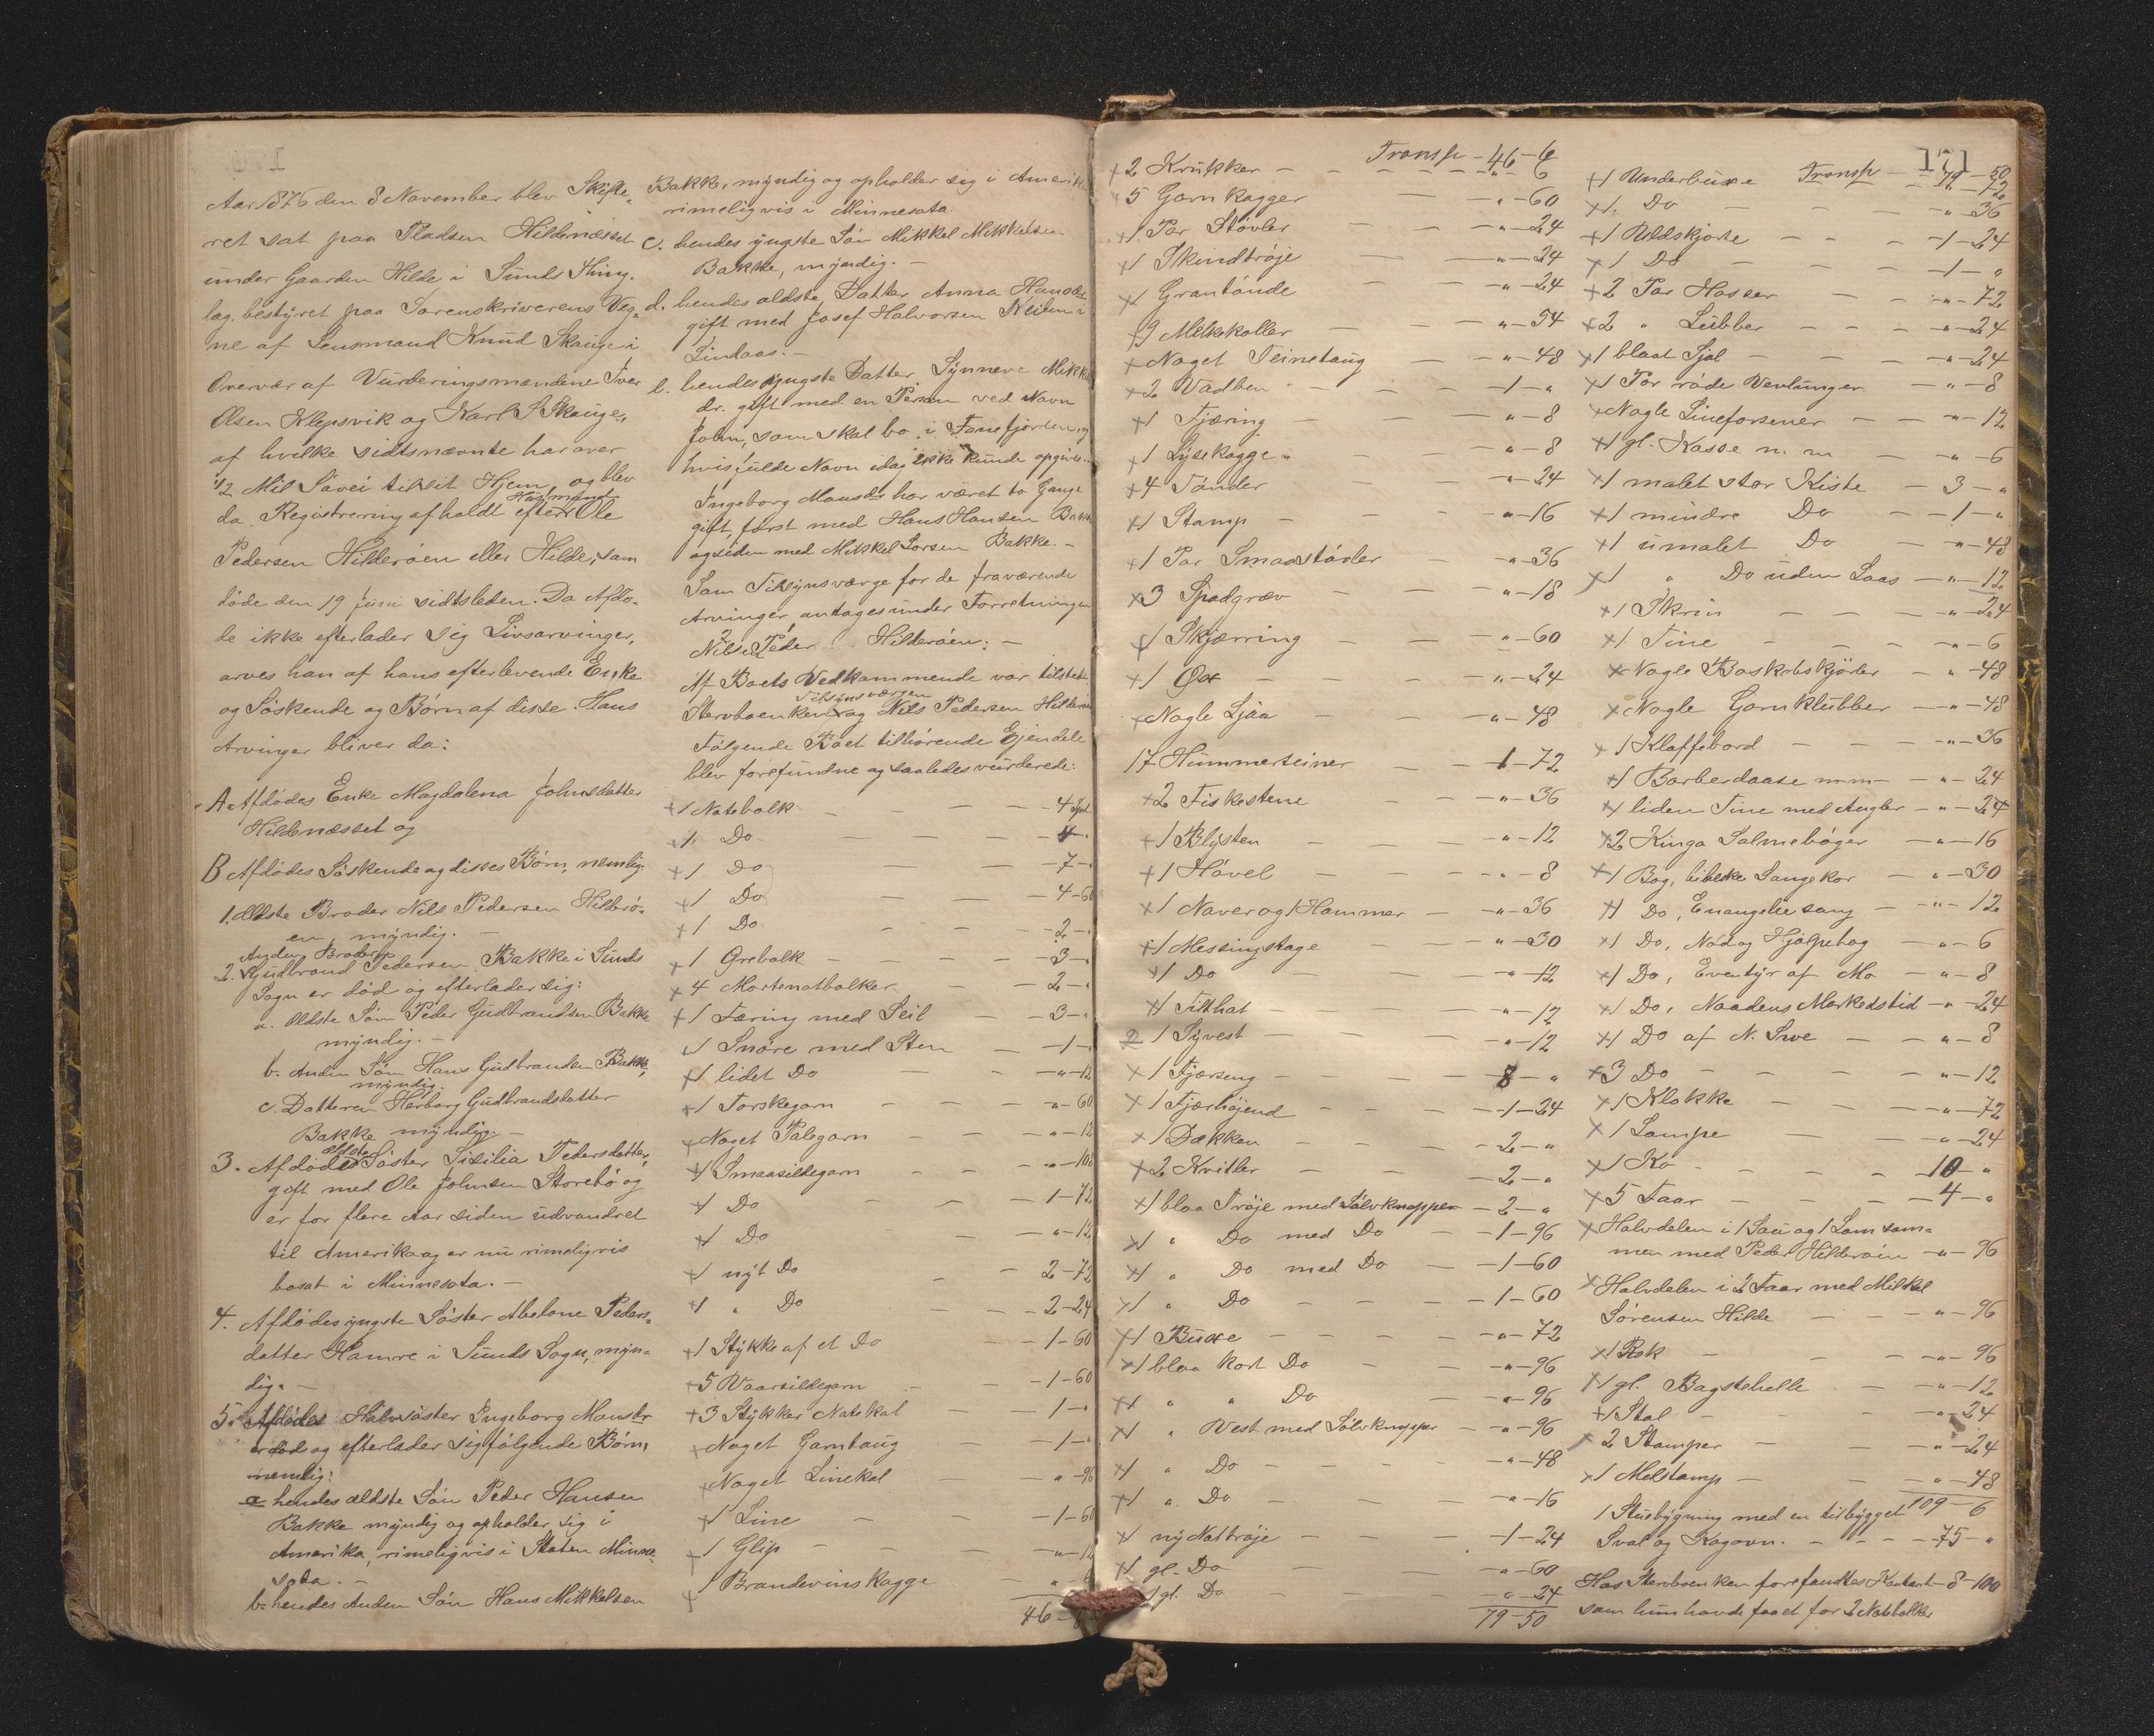 Aar 1876 den 8 November blev Skifte-
ret sat paa Pladsen Hildenæsset
under Gaarden Hilde i Sunds Thing-
lag bestyret paa Sorenskriverens Veg-
ne af Lensmand Knud Skauge i
Overvær af Vurderingsmændene Iver
Olsen Klepsvik og Karl S Skauge,
af hvilke sidtsnævnte har over
1/2 Mil Søvei til sit Hjem, og blev
da Registrering afholdt efter Huusmand Ole
Pedersen Hilderøen eller Hilde, som
døde den 19 Juni sidtsleden. Da Afdø-
de ikke efterlader sig Livsarvinger,
arves han af hans efterlevende Enke
og Søskende og Børn af disse. Hans
Arvinger bliver da:
A Afdødes Enke Magdalena Johnsdatter
Hildenæsset og
B Afdødes Søskende og disses Børn, nemlig:
1. Ældste Broder Nils Pedersen Hilderø-
en, myndig. —
2. Anden Broder Gudbrand Pedersen Bakke i Sunds
Sogn er død og efterlader sig:
a. Ældste Søn Peder Gudbrandsen Bakke
myndig. —
b. Anden Søn Hans Gudbrandsen Bakke,
myndig.
c. Datteren Herborg Gudbrandsdatter
Bakke myndig. —
3. Afdødes ældste Søster Sisilia Pedersdatter,
gift med Ole Johnsen Storebø og
er for flere Aar siden udvandret
til Amerika og er nu rimeligvis
bosat i Minnesota. —
4. Afdødes yngste Søster Abelone Peders-
datter Hamre i Sunds Sogn, myn-
dig. —
5. Afdødes Halvsøster Ingeborg Monsdr
er død og efterlader sig følgende Børn,
nemlig:
a. hendes ældste Søn Peder Hansen
Bakke myndig og opholder sig i
Amerika, rimeligvis i Staten Minne-
sota. —
b. hendes Anden Søn Hans Mikkelsen
Bakke, myndig og opholder sig i Amerika
rimeligvis i Minnesota.
c. hendes yngste Søn Mikkel Mikkelsen
Bakke, myndig. —
d. hendes ældste Datter Anna Hansdr
gift med Josef Halvorsen
Lindaas. —
e. hendes yngste Datter Synneve Mikkels
dr. gift med en Person ved Navn
John, som skal bo i Fanefjorden, og
hvis fulde Navn idag ikke kunde opgives. —
Ingeborg Monsdr har været to Gange
gift, først med Hans Hansen Bakke
og siden med Mikkel Larsen Bakke. —
Som Tilsynsværge for de fraværende
Arvinger, antages under Forretningen
Nils Peder Hilderøen: —
Af Boets Vedkommende var tilstede
Stervboenken, Tilsynsværgen og Nils Pedersen Hilderøen
Følgende Boet tilhørende Ejendele
blev forefundne og saaledes vurderede:
+ 1 Notebolk — — — 4 Spd
+ 1 Do — — — 4 - "
+ 1 Do — — — 7 - "
+ 1 Do — — — 4 - 60
+ 1 Do — — — 2 - "
+ 1 Ørebolk — — — 3 - "
+ 4 Mortenotbolker — — 2 - "
+ 1 Færing med Seil — — 3 - "
+ 1 Snøre med Sten — — 1 - "
+ 1 lidet Do — — " - 12
+ 1 Torskegarn — — — " - 60
+ Noget Palegarn — — " - 12
+ 1 Smaasildegarn — — " - 108
+ 1 Do — — 1 - 72
+ 1 Do — — " - 12
+ 1 nyt Do — — 2 - 72
+ 1 " Do — — 2 - 24
+ 1 Stykke af et Do — — 1 - 60
+ 5 Vaarsildegarn — — 1 - 60
+ 3 Stykker Notekal — — 1 - "
+ Noget Garntaug — — 1 - "
+ Noget Linekal — — " - 96
+ 1 Line — — 1 - 60
+ 1 Glip — — — " - 12
+ 1 Brændevins Kagge — " - 6
46 -
Transp - 46 - 6
+ 2 Krukker — — — " - 6
+ 5 Garn kagger — — " - 60
+ 1 Par Støvler — — " - 24
+ 1 Skindtrøje — — " - 24
+ 1 Grantønde — — " - 24
+ 9 Melkekoller — — " - 54
+ Noget Teinetaug — — " - 48
+ 2 Vadben — — 1 - "
+ 1 Tjæring — " - 8
+ 1 Lysekagge — " - 8
+ 4 Tønder — — " - 24
+ 1 Stamp — — " - 16
+ 1 Par Smaastøvler — " - 36
+ 3 Spadgræv — — " - 18
+ 1 Skjærring — — " - 60
+ 1 Øxe — — — " - 24
+ Nogle Ljaa — — " - 48
17 Hummerteiner — — 1 - 72
+ 2 Fiskestene — — " - 36
+ 1 Blysten — — " - 12
+ 1 Høvel — — — " - 8
+ 1 Naver og 1 Hammer — " - 36
+ 1 Messingstage — — " - 30
+ 1 Do — — " - 12
+ 1 Filthat — — " - 12
2 1 Syvest — — " - 12
+ 1 Fjærseng — — — 8 - "
+ 1 Fjærhøjend — — — 1 - 24
+ 1 Dækken — — — 2 - "
+ 2 Kvitler — — — 2 - "
+ 1 blaa Trøje med Sølvknapper — 2 - "
+ 1 " Do med Do — 1 - 96
+ 1 " Do med Do — 1 - 60
+ 1 " Do — — — 1 - 60
+ 1 Buxe — — — " - 72
+ 1 blaa kort Do — — " - 96
+ 1 " " Do — " - 96
+ 1 " Vest med Sølvknapper — " - 96
+ 1 " Do — — — " - 48
+ 1 " Do — — — " - 16
+ 1 ny Nattrøje — — — 1 - 24
+ 1 gl. Do — — " - 60
1 gl. Do — — " - 24
79 - 50
171
Transp — 79 - 50
+ 1 Underbuxe — — " - 72
+ 1 Do — — — " - 36
+ 1 Uldskjorte — — — 1 - 24
+ 1 Do — — — 1 - "
+ 2 Par Hoser — — " - 72
+ 2 " Lubber — — — " - 24
+ 1 blaat Sjal — — — " - 24
+ 1 Par røde Venlunger — " - 8
+ Nogle Lineforsener — — " - 12
+ 1 gl. Kasse m. m — — " - 6
+ 1 malet stor Kiste — 3 - "
+ 1 mindre Do — 1 - "
+ 1 umalet Do — " - 48
+ 1 " Do uden Laas — " - 12
+ 1 Skrin — — — " - 24
+ 1 Tine — — — " - 6
+ Nogle Boskabskjørler — " - 48
+ Nogle Garnklubber — " - 48
+ 1 Klaffebord — — — " - 36
+ 1 Barberdaase m m — " - 24
+ 1 liden Tine med Angler — " - 24
+ 2 Kingo Salmebøger — " - 16
+ 1 Bog, bibelske Sangekor — " - 30
+ 1 Do, Evangelie sang — " - 12
+ 1 Do, Nød og Hjælpebog — " - 6
+ 1 Do, Eventyr af Mo — " - 8
+ 1 Do, Naadens Markedstid — " - 24
+ 1 Do af N. — — " - 8
+ 3 Do — — — " - 12
+ 1 Klokke — — — " - 72
+ 1 Lampe — — " - 24
+ 1 Ko — — — 10 - "
+ 5 Faar — — — 4 - "
+ Halvdelen i 1 Sau og 1 Lam sam-
men med Peder Hilderøen — " - 96
+ Halvdelen i 2 Faar med Mikkel
Sørensen Hilde — — " - 96
+ 1 Rok — — — " - 96
+ 1 gl. Bagstehelle — — " - 12
+ 1 Stol — — — " - 24
+ 2 Stamper — — " - 24
+ 1 Melstamp — — " - 48
109 - 6
1 Stuebygning med en tilbygget
Sval og Kogovn. — — 75 - "
Hos Stervboenken forefandtes Kontant — 8 - 100
som hun havde faaet for 2 Notebolker